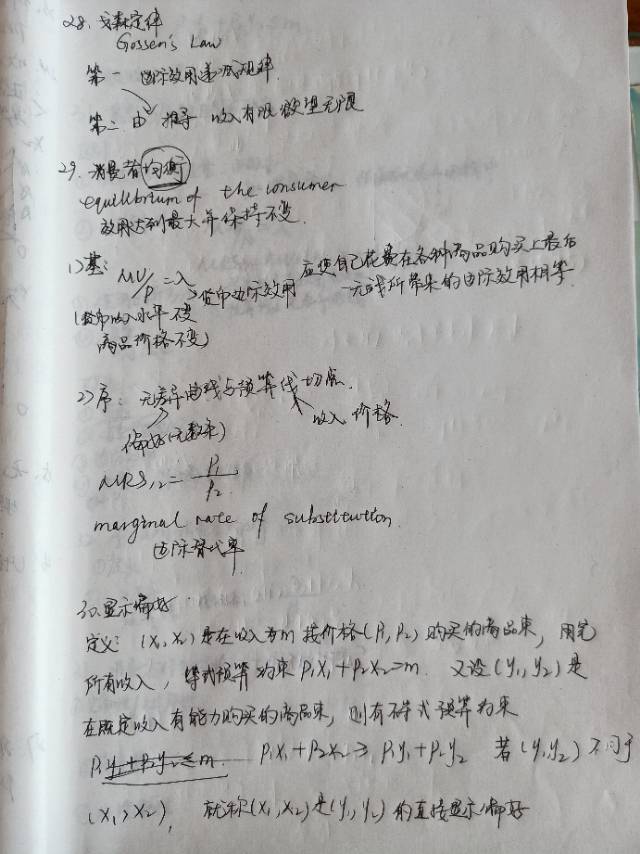 28. 戈森定律
Gossen's Law
第一 边际效用递减规律
第二 由 推导 收入有限 欲望无限
29. 消费者均衡
equilibrium of the consumer
效用达到最大并保持不变.
1) 基: MU/P = λ 应使自己花费在各种商品购买上最后
货币边际效用 一元钱所带来的边际效用相等.
(货币收入水平不变
商品价格不变)
2) 序: 无差异曲线与预算线切点.
偏好(无数条) 收入 价格
MRS12 = P1/P2
marginal rate of substitution
边际替代率
30. 显示偏好
定义: (x1, x2) 是在收入为m 按价格(P1, P2) 购买的商品束, 用完
所有收入, 等式预算约束 P1x1+P2x2=m. 又设(y1, y2)是
在既定收入有能力购买的商品束, 则有不等式预算约束
P1y1+P2y2≤m P1x1+P2x2≥P1y1+P2y2 若(y1, y2)不同于
(x1, x2), 就称(x1, x2)是(y1, y2)的直接显示偏好